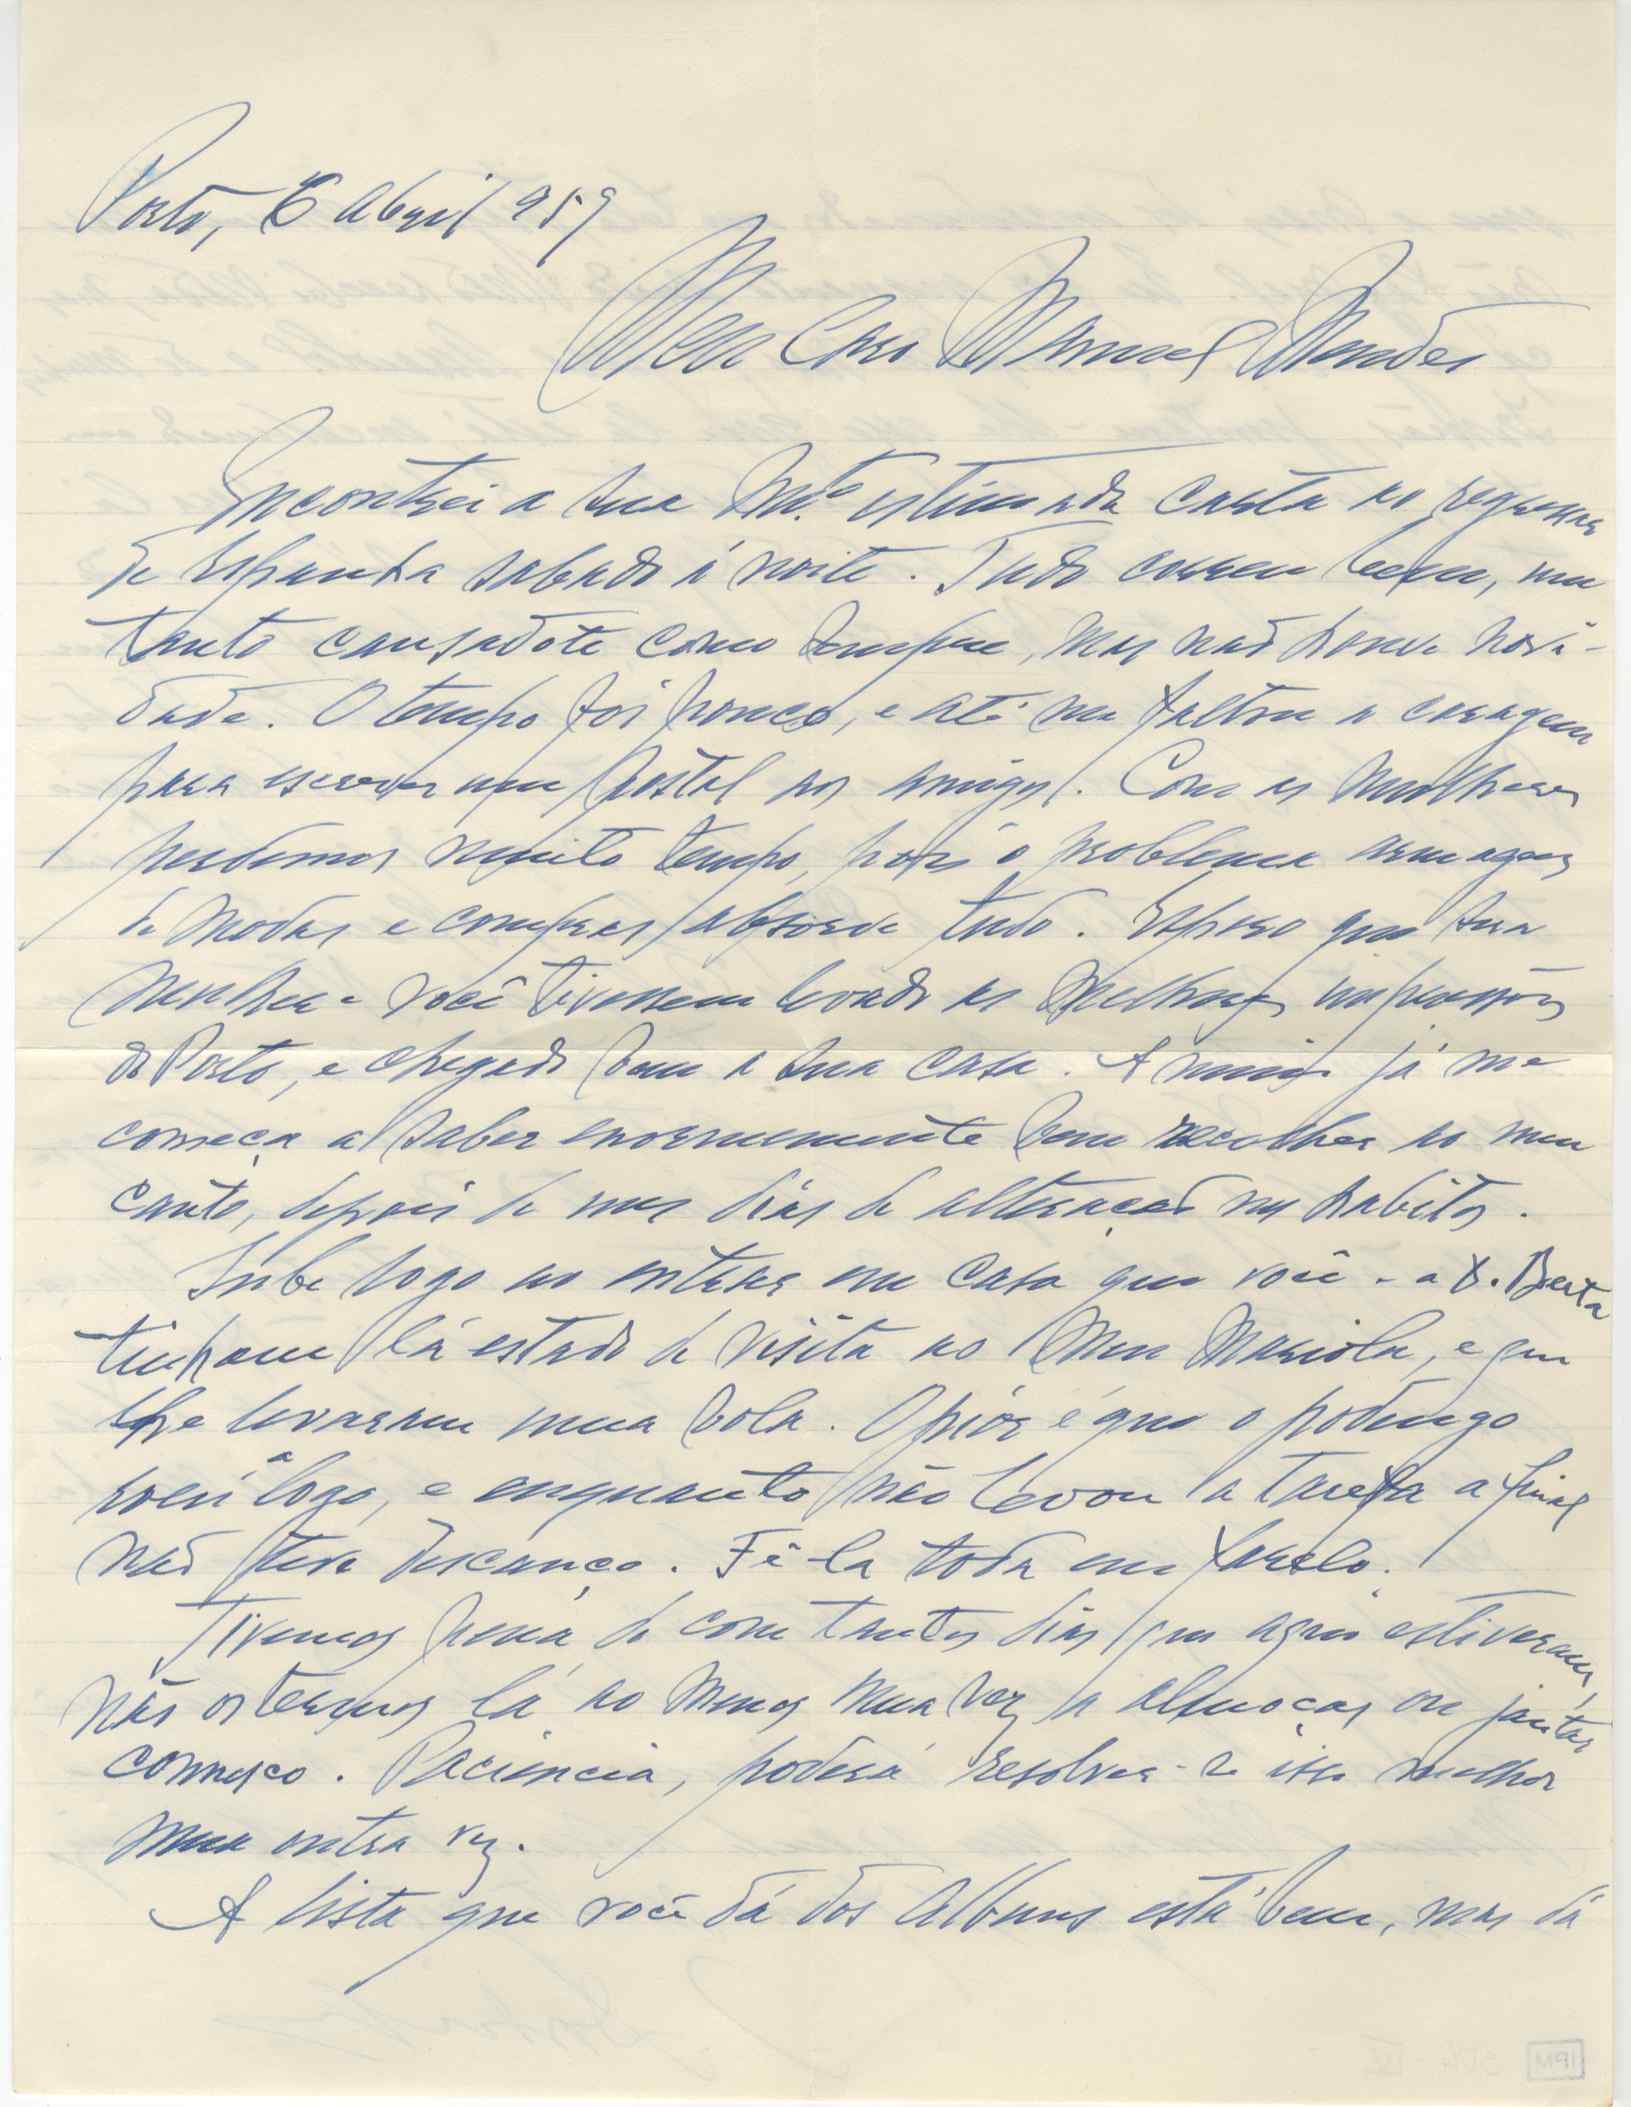 Porto, 6 Abril 959
Meu Caro Manuel Mendes
Encontrei a sua m.to estimada carta ao regressar
de Espanha sabado á noite. Tudo correu bem, um
tanto cansadote como sempre, mas não houve novi-
dade. O tempo foi pouco, e até me faltou a coragem
para escrever um postal aos amigos. Com as mulheres
perdemos muito tempo, pois o problema armazens
de modas e compras absorve tudo. Espero que sua
mulher e você tivessem levado as melhores impressões
do Porto, e chegado bem a sua casa. A mim já me
começa a saber enormemente bem recolher ao meu
canto, depois de uns dias de alteração nos habitos.
Soube logo ao entrar em casa que você e a D. Berta
tinham lá estado de visita ao meu Mariola, e que
lhe levaram uma bola. O peor é que o podengo
roeu-a logo, e enquanto não levou a tarefa a final
não teve descanço. Fê-la toda em farelo.
Tivemos pena de com tantos dias que aqui estiveram,
não os termos lá ao menos uma vez a almoçar ou jantar
connosco. Paciencia, poderá resolver-se isso melhor
numa outra vez.
A lista que você dá dos Albuns está bem, mas dá
IPM